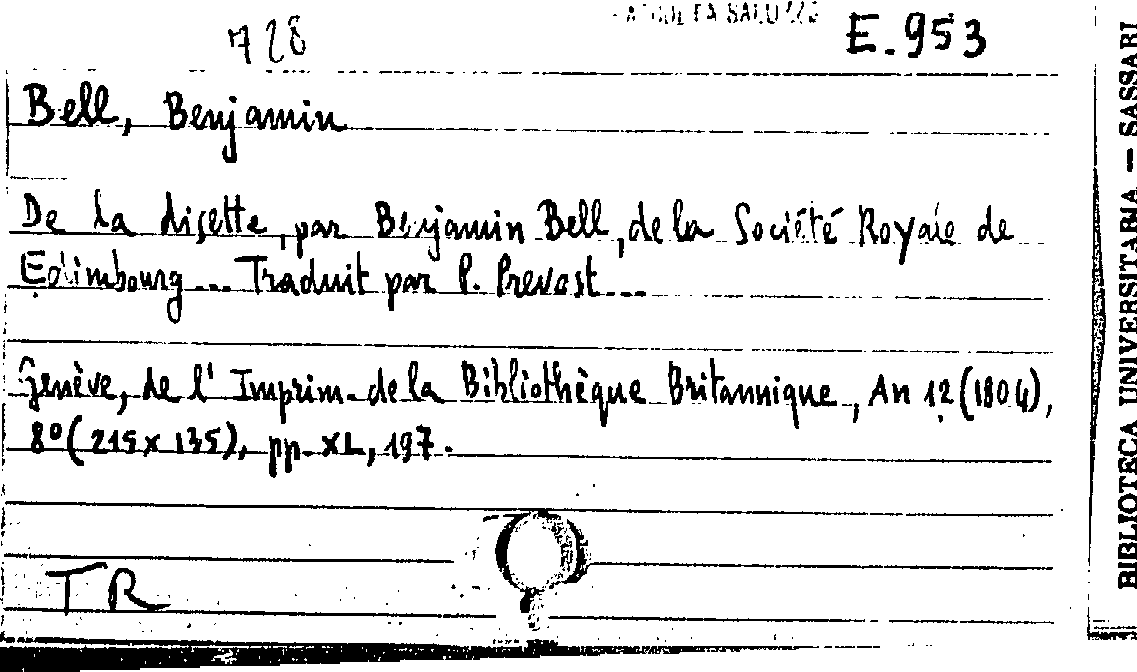 728
E.953
Bell, Benjamin
De la disette, par Benjamin Bell, de la Société Royale de
Edimbourg... Traduit par P. Prevost...
Genève, de l'Imprim. de la Bibliothèque Britannique, An 12 (1804),
8° (215 x 135), pp. XL, 197.
TR
BIBLIOTECA UNIVERSITARIA — SASSARI